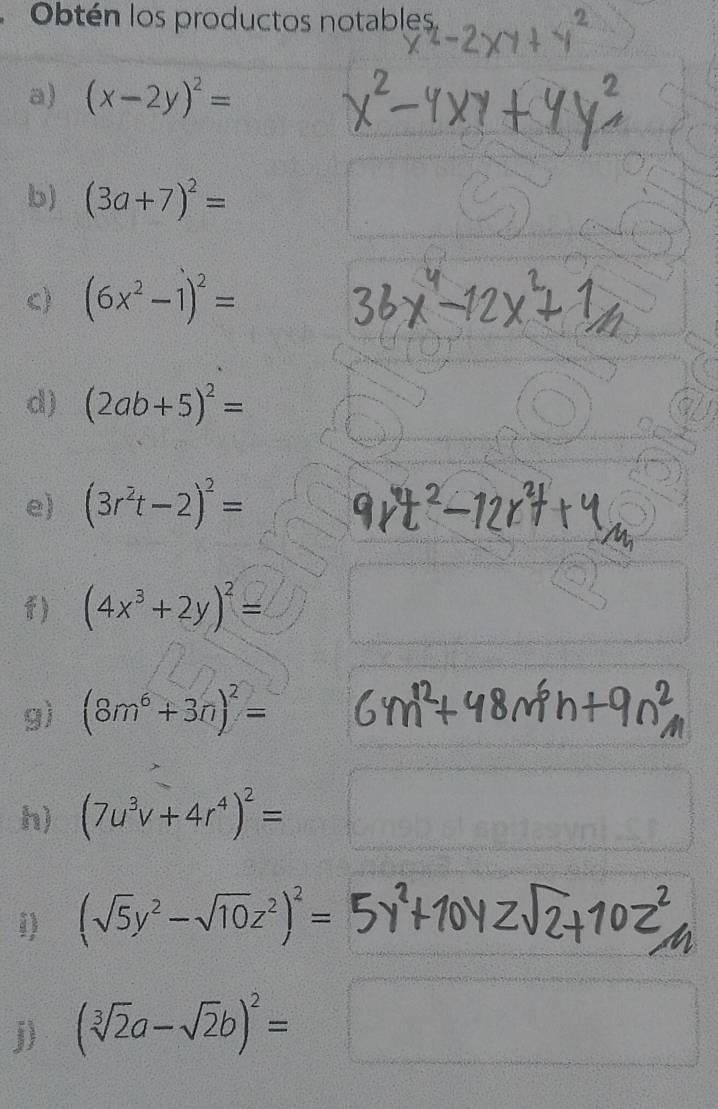 Obtén los productos notables.
x²-2xy+y²
a) (x-2y)² = x²-4xy+4y²
b) (3a+7)² =
c) (6x²-1)² = 36x⁴-12x²+1
d) (2ab+5)² =
e) (3r²t-2)² = 9r⁴t²-12r²t+4
f) (4x³+2y)² =
g) (8m⁶+3n)² = 6m¹²+48m⁶n+9n²
h) (7u³v+4r⁴)² =
i) (√5y²-√10z²)² = 5y²+10yz√2+10z²
j) (∛2a-√2b)² =
Ejemplar sin
prohibid
propied